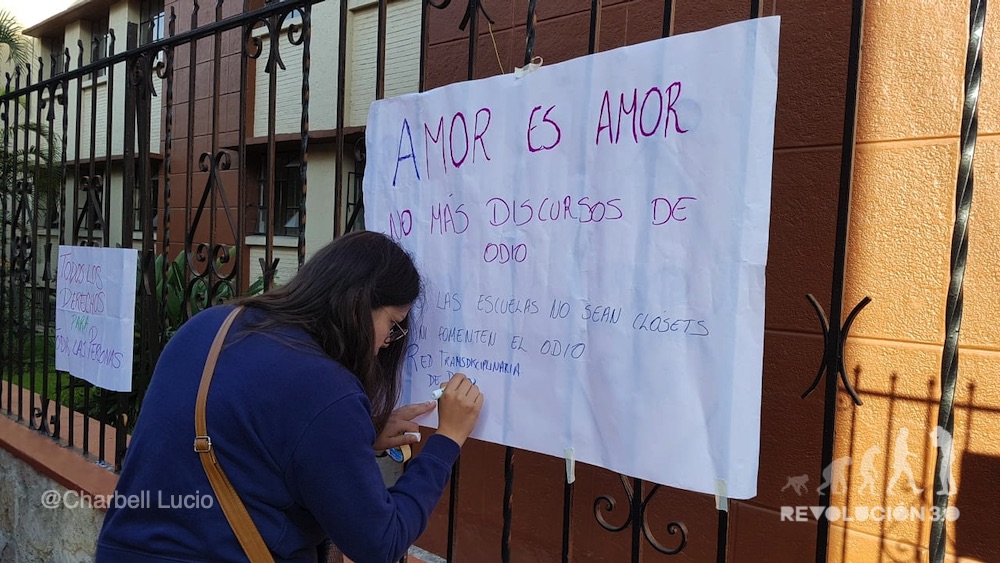 AMOR ES AMOR
NO MÁS DISCURSOS DE
ODIO
LAS ESCUELAS NO SEAN CLÓSETS
FOMENTEN EL ODIO
RED TRANSDISCIPLINARIA
DE
TODOS LOS
DERECHOS
PARA
TODA LAS PERONAS
@Charbell Lucio
REVOLUCIÓN3.0